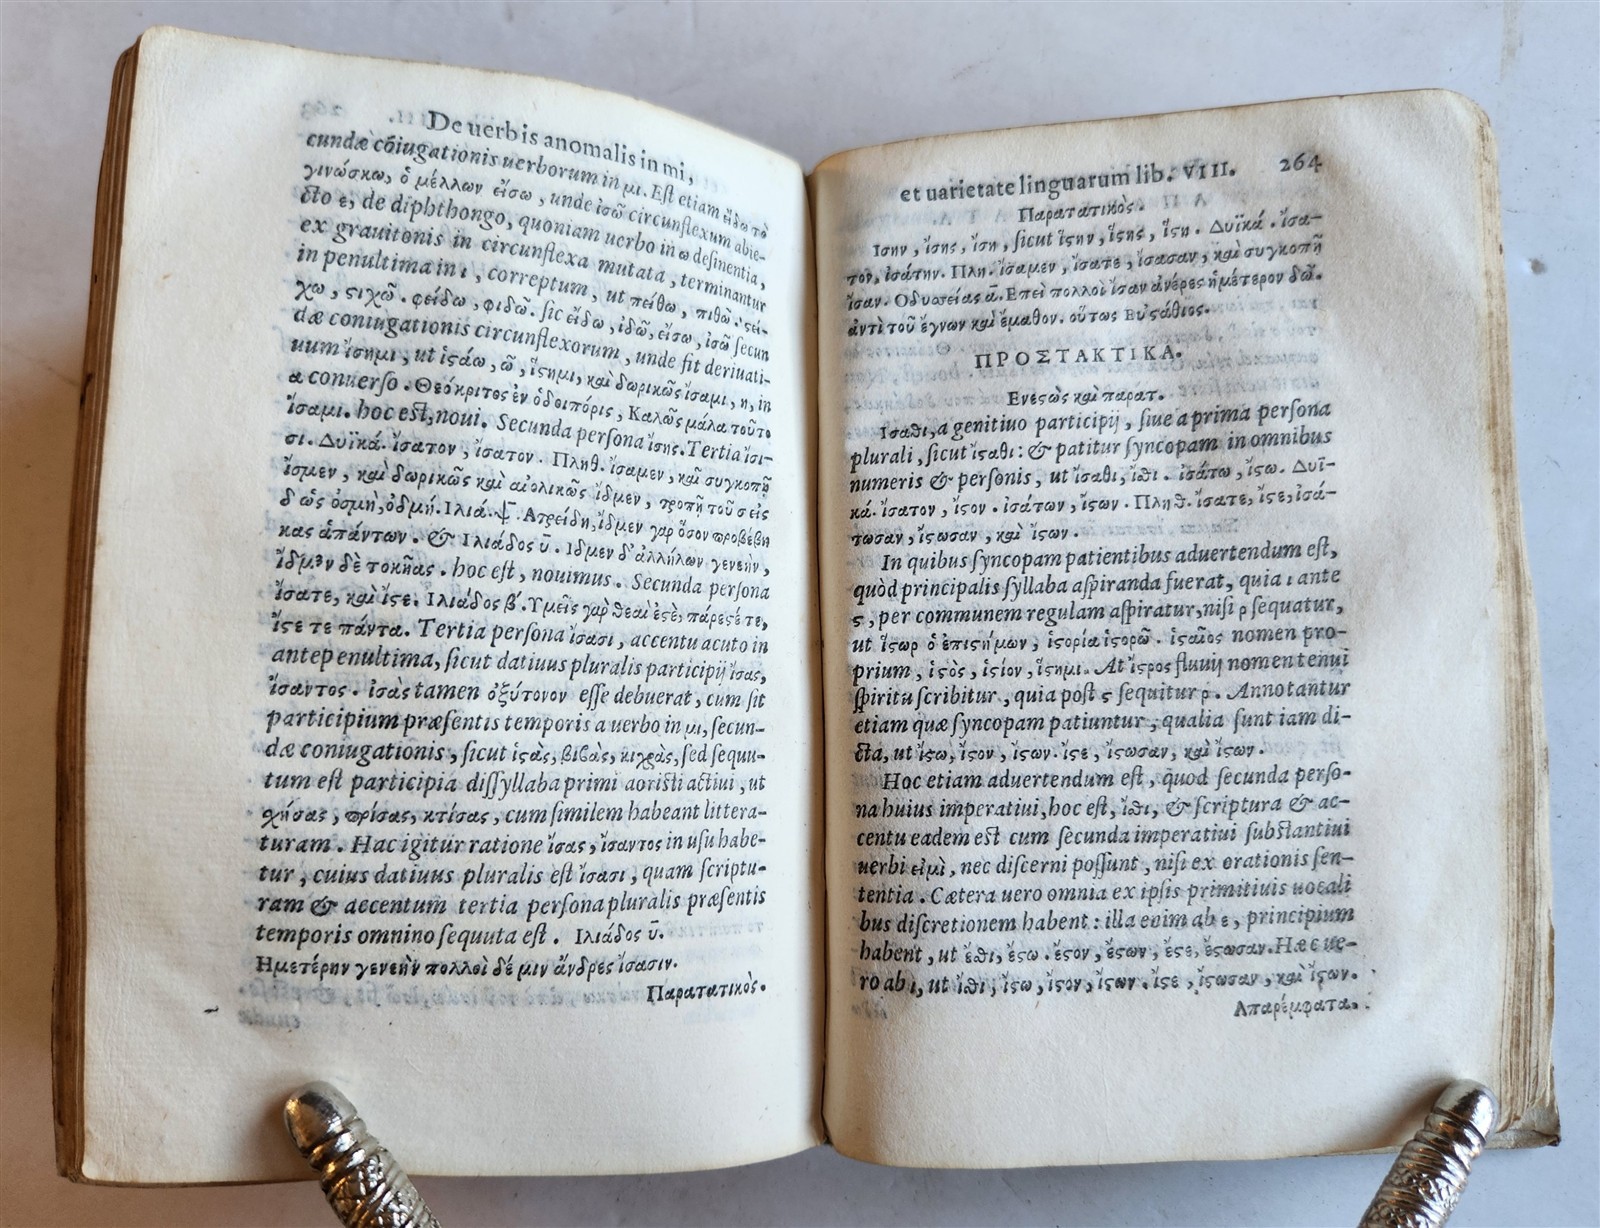 De uerbis anomalis in mi,
cundæ cõiugationis uerborum in μι. Est etiam εἴδω τὸ
γινώσκω, ὁ μέλλων εἴσω, unde ἰσῶ circunflexum abie-
cto ε, de diphthongo, quoniam uerbo in ω desinentia,
ex grauitonis in circunflexa mutata, terminantur
in penultima in ι, correptum, ut πείθω, πιθῶ. ϛεί-
χω, ϛιχῶ. φείδω, φιδῶ. sic εἴδω, ἰδῶ, εἴσω, ἰσῶ secun
dæ coniugationis circunflexorum, unde fit deriuati-
uum ἴσημι, ut ἱϛάω, ῶ, ἵϛημι, καὶ δωρικῶς ἴσαμι, η, in
α conuerso. Θεόκριτος ἐν ὁδοιπόρις, Καλῶς μάλα τοῦτο
ἴσαμι. hoc est, noui. Secunda persona ἴσης. Tertia ἴσι-
σι. Δυϊκά. ἴσατον, ἴσατον. Πληθ. ἴσαμεν, καὶ συγκοπῇ
ἴσμεν, καὶ δωρικῶς καὶ αἰολικῶς ἴδμεν, τροπῇ τοῦ σ εἰς
δ ὡς ὀσμὴ, ὀδμή. Ιλιά. ψ. Ατρείδη, ἴδμεν γαρ ὅσον προβέβη
κας ἁπάντων. & Ιλιάδος υ̅. Ιδμεν δ' ἀλλήλων γενεὴν,
ἴδμεν δὲ τοκῆας. hoc est, nouimus. Secunda persona
ἴσατε, καὶ ἴϛε. Ιλιάδος β. Υμεῖς γαρ θεαὶ ἐϛὲ, πάρεϛέ τε,
ἴϛε τε πάντα. Tertia persona ἴσασι, accentu acuto in
antepenultima, sicut datiuus pluralis participij ἴσας,
ἴσαντος. ἰσὰς tamen ὀξύτονον esse debuerat, cum sit
participium præsentis temporis a uerbo in μι, secun-
dæ coniugationis, sicut ἱϛὰς, βιβὰς, κιχρὰς, sed sequu-
tum est participia dissyllaba primi aoristi actiui, ut
χήσας, πρίσας, κτίσας, cum similem habeant littera-
turam. Hac igitur ratione ἴσας, ἴσαντος in usu habe-
tur, cuius datiuus pluralis est ἴσασι, quam scriptu-
ram & accentum tertia persona pluralis præsentis
temporis omnino sequuta est. Ιλιάδος υ̅.
Ημετέρην γενεὴν πολλοὶ δέ μιν ἄνδρες ἴσασιν.
Παρατατικὸς.
et uarietate linguarum lib. VIII. 264
Παρατατικὸς.
Ισην, ἴσης, ἴση, sicut ἵϛην, ἵϛης, ἵϛη. Δυϊκά. ἴσα-
τον, ἰσάτην. Πλη. ἴσαμεν, ἴσατε, ἴσασαν, καὶ συγκοπῇ
ἴσαν. Οδυσσείας α̅. Επεὶ πολλοὶ ἴσαν ἀνέρες ἡμέτερον δῶ.
ἀντὶ τοῦ ἔγνων καὶ ἔμαθον. οὕτως Ευϛάθιος.
ΠΡΟΣΤΑΚΤΙΚΑ.
Ενεϛὼς καὶ παρατ.
Ισαθι, a genitiuo participij, siue a prima persona
plurali, sicut ἵϛαθι: & patitur syncopam in omnibus
numeris & personis, ut ἴσαθι, ἴθι. ἰσάτω, ἴϛω. Δυϊ-
κά. ἴσατον, ἴϛον. ἰσάτων, ἴϛων. Πληθ. ἴσατε, ἴϛε, ἰσά-
τωσαν, ἴϛωσαν, καὶ ἴϛων.
In quibus syncopam patientibus aduertendum est,
quòd principalis syllaba aspiranda fuerat, quia ι ante
ϛ, per communem regulam aspiratur, nisi ρ sequatur,
ut ἵϛωρ ὁ ἐπιϛήμων, ἱϛορία ἱϛορῶ. ἱϛιαῖος nomen pro-
prium, ἱϛὸς, ἱϛίον, ἵϛημι. At ἴϛρος fluuij nomen tenui
spiritu scribitur, quia post ϛ sequitur ρ. Annotantur
etiam quæ syncopam patiuntur, qualia sunt iam di-
cta, ut ἴϛω, ἴϛον, ἴϛων. ἴϛε, ἴϛωσαν, καὶ ἴϛων.
Hoc etiam aduertendum est, quod secunda perso-
na huius imperatiui, hoc est, ἴθι, & scriptura & ac-
centu eadem est cum secunda imperatiui substantiui
uerbi εἰμὶ, nec discerni possunt, nisi ex orationis sen-
tentia. Cætera uero omnia ex ipsis primitiuis uocali
bus discretionem habent: illa enim ab ε, principium
habent, ut ἔθι, ἔϛω. ἔϛον, ἔϛων, ἔϛε, ἔϛωσαν. Hæc ue-
ro ab ι, ut ἴθι, ἴϛω, ἴϛον, ἴϛων. ἴϛε, ἴϛωσαν, καὶ ἴϛων.
Απαρέμφατα.